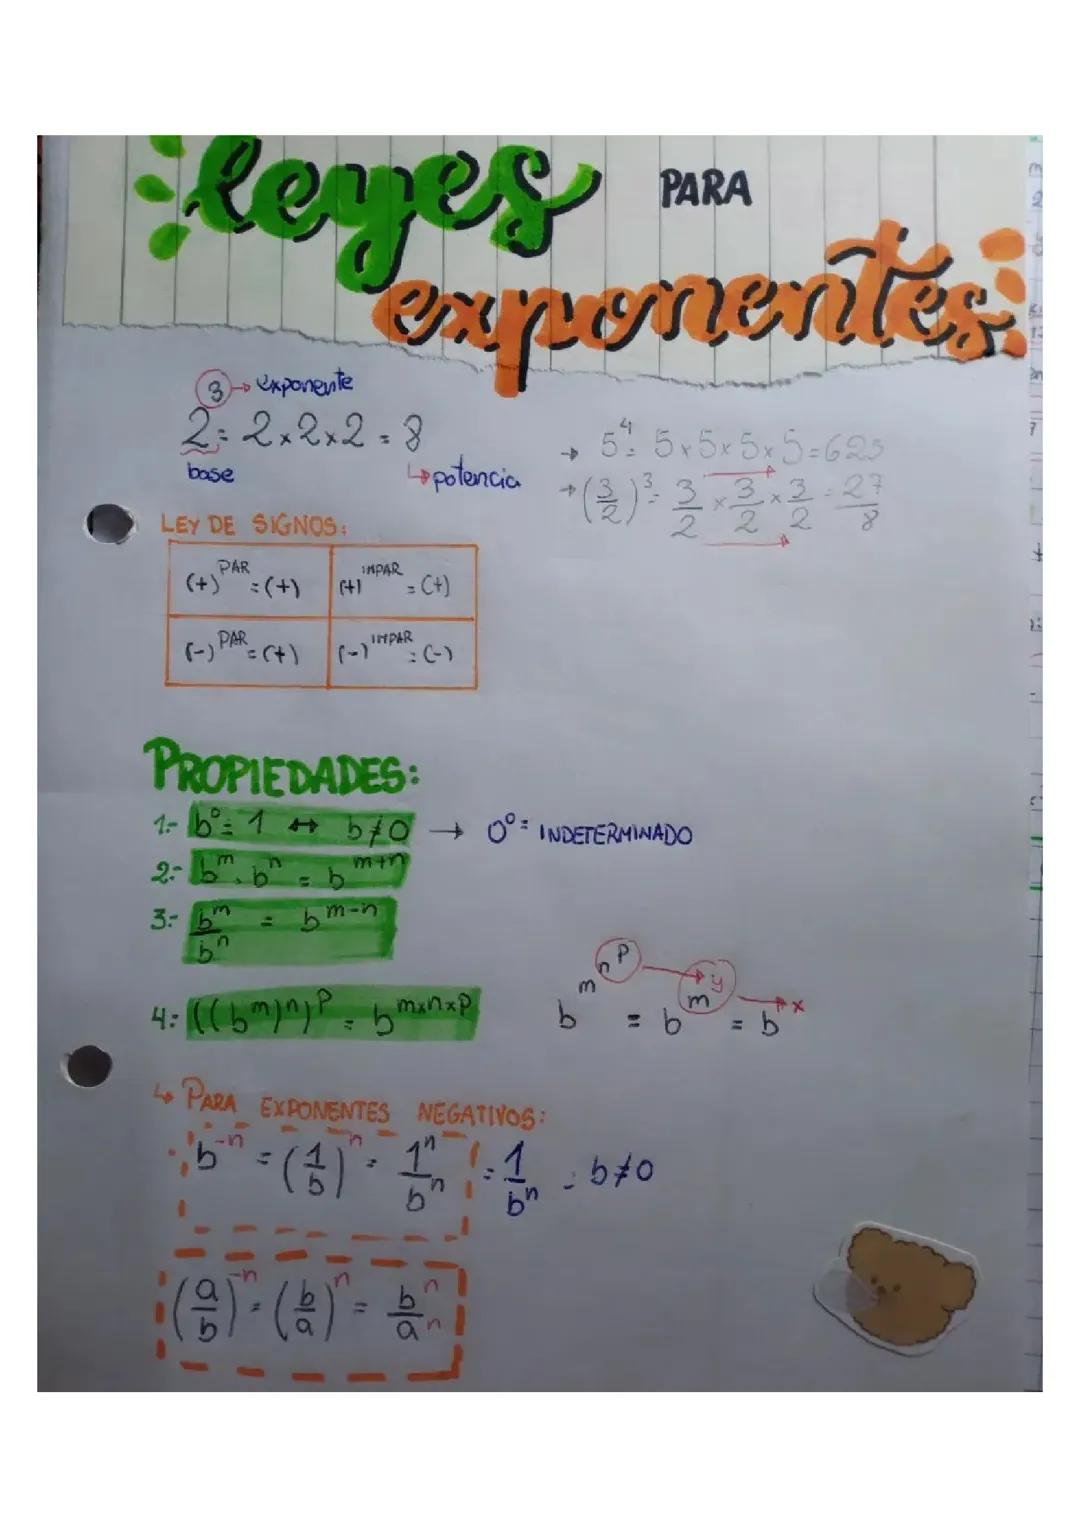 leyes PARA
exponentes
2³ = 2 x 2 x 2 = 8
exponente
base
↳ potencia
→ 5⁴ = 5 x 5 x 5 x 5 = 625
→ (3/2)³ = 3/2 x 3/2 x 3/2 = 27/8
LEY DE SIGNOS:
(+)^PAR = (+) (+)^IMPAR = (+)
(-)^PAR = (+) (-)^IMPAR = (-)
PROPIEDADES:
1.- b⁰ = 1 ↔ b ≠ 0 → 0⁰ = INDETERMINADO
2.- b^m . b^n = b^m+n
3.- b^m/b^n = b^m-n
4.- ((b^m)^n)^p = b^mxnxp
b^m^n^p = b^m^y = b^x
↳ PARA EXPONENTES NEGATIVOS:
b^-n = (1/b)^n = 1^n/b^n = 1/b^n = b ≠ 0
(a/b)^-n = (b/a)^n = b^n/a^n